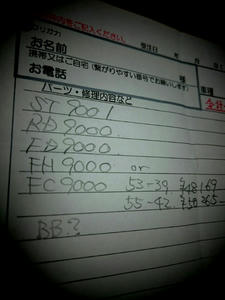 内をご記入ください。
フリガナ 受注日 年
お名前 様
携帯又はご自宅(繋がりやすい番号でお願いします)
お電話 車種
パーツ・修理内容など
ST 9001
RD 9000
FD 9000
FH 9000 or
FC 9000 53-39 ¥48169
55-42 ¥50365-
BB?